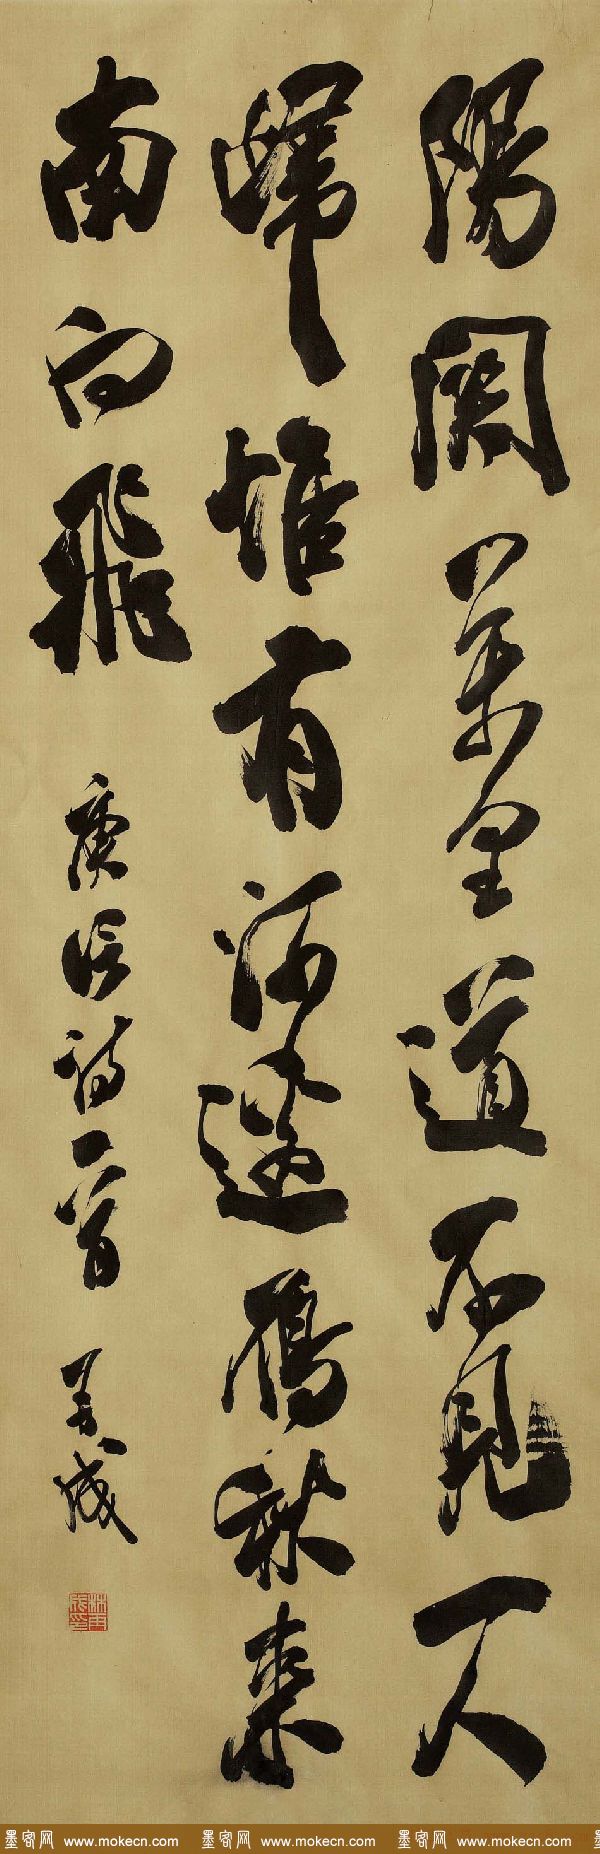 陽関萬里道不見一人
歸惟有河邊鴈秋來
南向飛
庾信詩一首
墨客网 www.mokecn.com 墨客网 www.mokecn.com 墨客网 www.mokecn.com